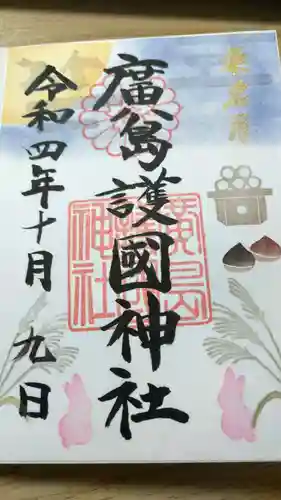 長月
廣島護國神社
廣島護國神社
令和四年十月九日